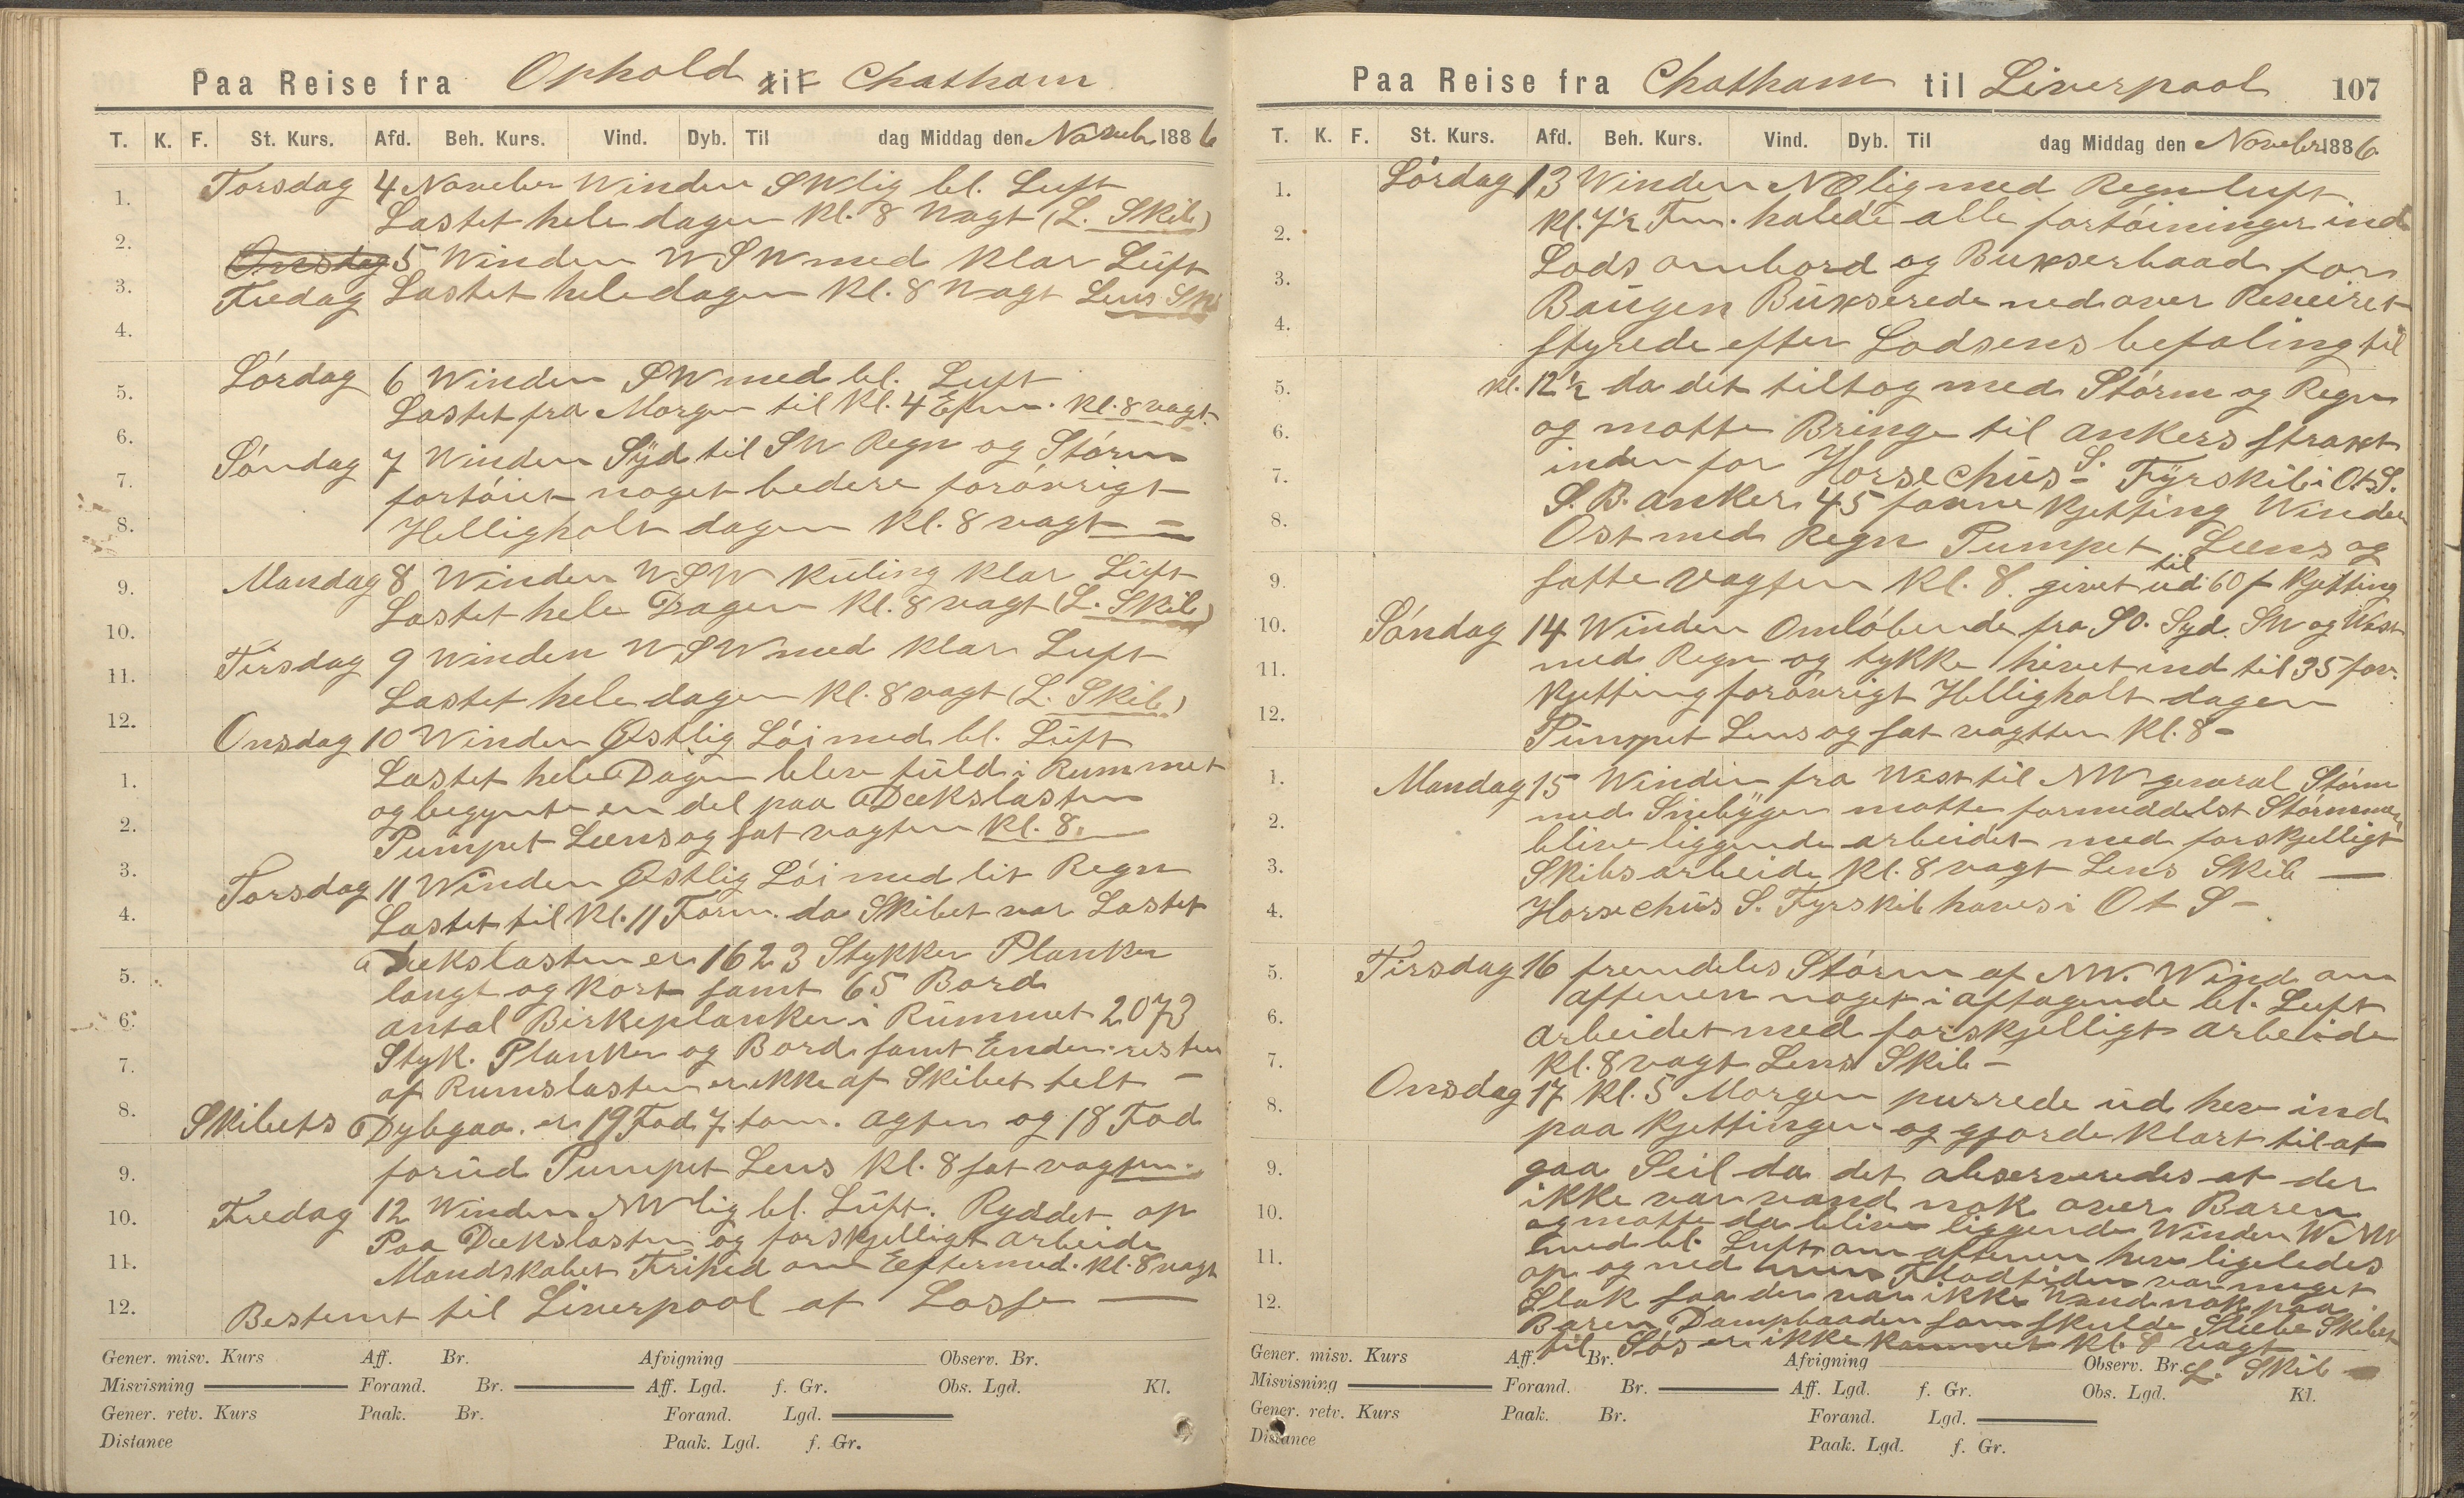 Paa Reise fra Ophold til Chatham
T. K. F. St. Kurs. Afd. Beh. Kurs. Vind. Dyb. Til dag Middag den November 1886
Torsdag 4 November Winden SWlig bl. Luft
Lastet hele dagen kl. 8 Vagt (L. Skib)
Onsdag 5 Winden WSW med klar Luft
Fredag Lastet hele dagen kl. 8 Vagt Lens Sk
Lórdag 6 Winden SW med bl. Luft
Lastet fra Morgen til kl. 4 Efm. kl. 8 vagt
Sóndag 7 Winden Syd til SW Regn og Stórm
fortóiet noget bedere foróvrigt
Helligholt dagen kl. 8 vagt =
Mandag 8 Winden WSW Kuling klar Luft
Lastet hele Dagen kl. 8 vagt (L. Skib)
Tirsdag 9 Winden WSW med klar Luft
Lastet hele dagen kl. 8 vagt (L. Skib)
Onsdag 10 Winden Østlig Lói med bl. Luft
Lastet hele Dagen blev fuld i Rummet
og begynte en del paa Dækslasten
Pumpet Læns og sat vagten kl. 8.
Torsdag 11 Winden Østlig Lói med lit Regn
Lastet til kl. 11 Form. da Skibet var Lastet
Dækslasten er 1623 Stykker Planker
langt og kort samt 65 Bord
antal Birkeplanker i Rummet 2073
Styk. Planker og Bord samt Ender resten
af Rumslasten er ikke af Skibet telt -
Skibets Dybgaa. er 19 Fod 7 tom. agter og 18 Fod
forud Pumpet Lens kl. 8 sat vagten.
Fredag 12 Winden NWlig bl. Luft. Ryddet op
Paa Dækslasten og forskjelligt arbeide
Mandskabet Frihed om Eftermed. kl. 8 vagt
Bestemt til Liverpool at Losse —
1.
2.
3.
4.
5.
6.
7.
8.
9.
10.
11.
12.
1.
2.
3.
4.
5.
6.
7.
8.
9.
10.
11.
12.
Gener. misv. Kurs Aff. Br. Afvigning Observ. Br.
Misvisning Forand. Br. Aff. Lgd. f. Gr. Obs. Lgd. Kl.
Gener. retv. Kurs Paak. Br. Forand. Lgd.
Distance Paak. Lgd. f. Gr.
Paa Reise fra Chatham til Liverpool 107
T. K. F. St. Kurs. Afd. Beh. Kurs. Vind. Dyb. Til dag Middag den November 1886
Lórdag 13 Winden NOlig med Regnluft
kl. 7½ Fm. halede alle fortóininger ind
Lods ombord og Bukserbaad for
Baugen Bukserede nedover Reveiret
styrede efter Lodsens befaling til
kl. 12½ da det tiltog med Stórm og Regn
og motte Bringe til ankers strakt
inden for Horsechus S. Fyrskib i OtS.
S.B. anker 45 favne kjetting Winden
Ost med Regn Pumpet Læns og
satte vagten kl. 8. givet ud til 60 f kjetting
Sóndag 14 Winden Omlóbende fra SO. Syd. SW og West
med Regn og tykke hivet ind til 35 fav.
kjetting foróvrigt Helligholt dagen
Pumpet Lens og sat vagten kl. 8 -
Mandag 15 Winden fra West til NW general Stórm
med Snebyger motte formeddelst Stórmen
blive liggende arbeidet med forskjelligt
Skibsarbeide kl. 8 vagt Lens Skib —
Horsechus S. Fyrskib haves i OtS -
Tirsdag 16 fremdeles Stórm af NW. Wind om
aftenen noget i aftagende bl. Luft
arbeidet med forskjelligt arbeide
kl. 8 vagt Lens Skib -
Onsdag 17 kl. 5 Morgen purrede ud hev ind
paa kjettingen og gjorde klart til at
gaa Seil da det observeredes at der
ikke var vand nok over Baren
og motte da blive liggende Winden WNW
med bl. Luft om aftenen hev ligeledes
op og ned Flodtiden var meget
Slak saa der var ikke Vand nok paa
Baren Dampbaaden som skulde Slæbe Skibet
til Sós er ikke kommet kl. 8 vagt
L. Skib
1.
2.
3.
4.
5.
6.
7.
8.
9.
10.
11.
12.
1.
2.
3.
4.
5.
6.
7.
8.
9.
10.
11.
12.
Gener. misv. Kurs Aff. Br. Afvigning Observ. Br.
Misvisning Forand. Br. Aff. Lgd. f. Gr. Obs. Lgd. Kl.
Gener. retv. Kurs Paak. Br. Forand. Lgd.
Distance Paak. Lgd. f. Gr.